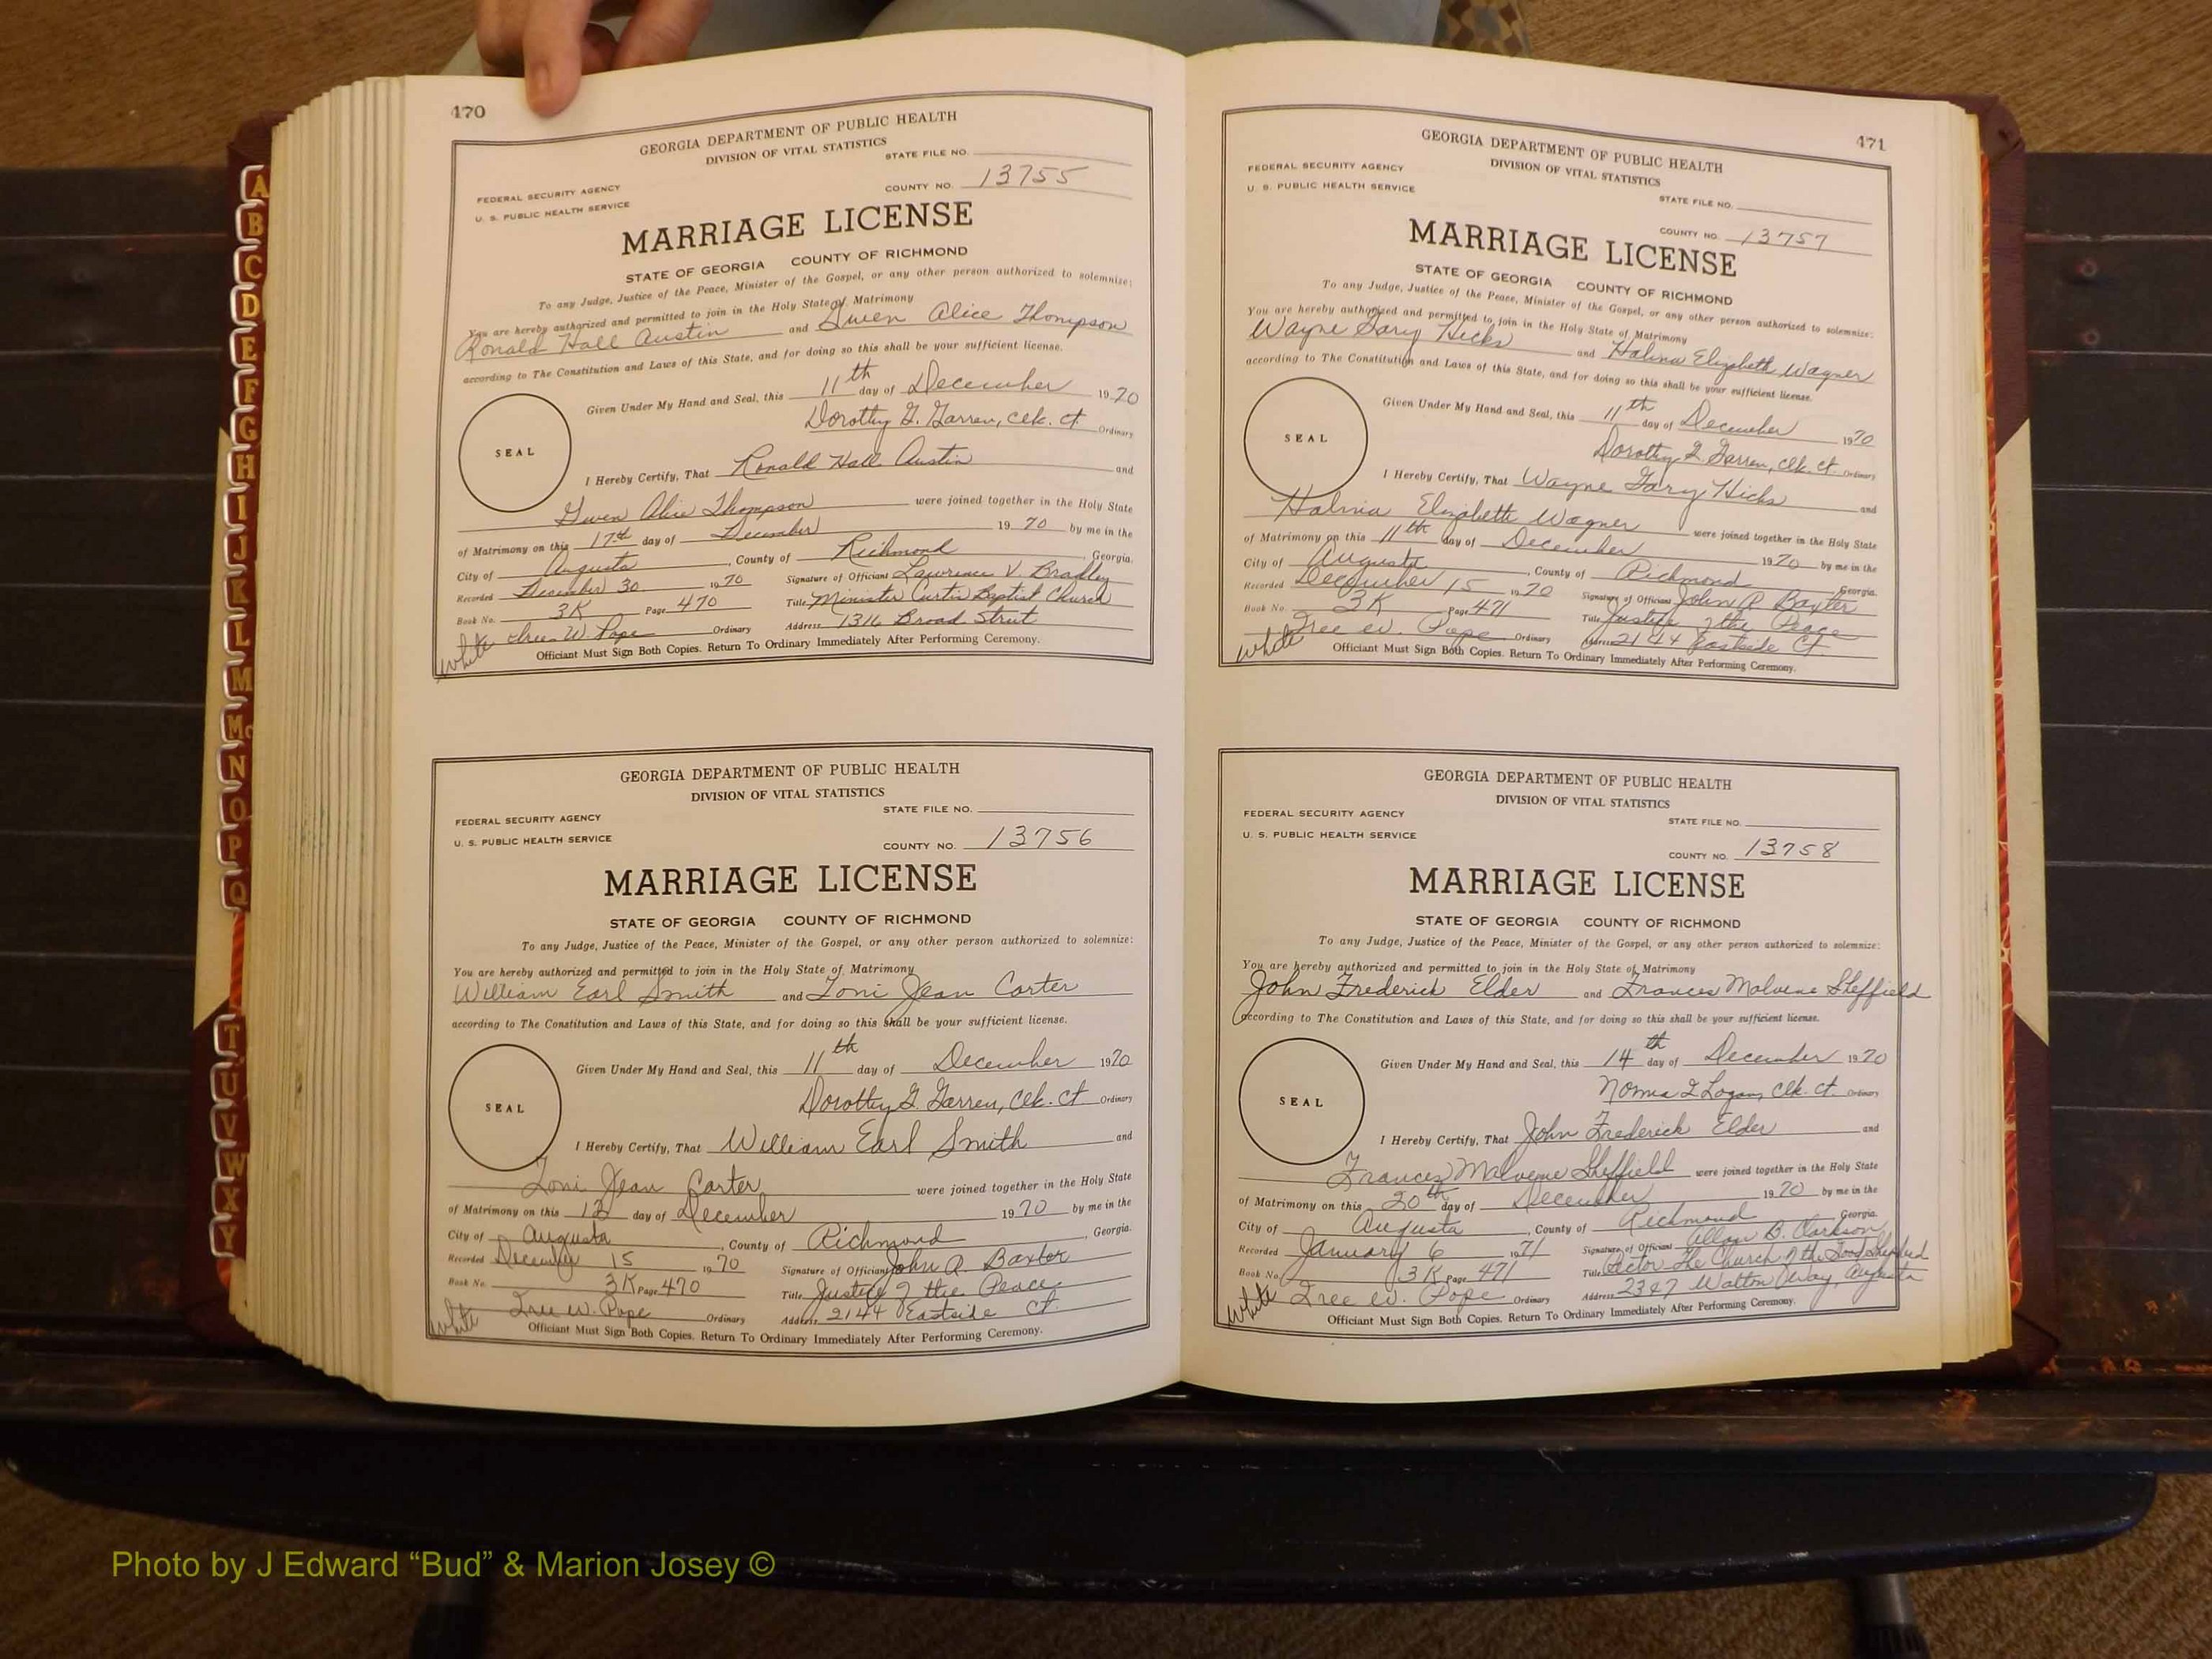 470
GEORGIA DEPARTMENT OF PUBLIC HEALTH
DIVISION OF VITAL STATISTICS
STATE FILE NO.
FEDERAL SECURITY AGENCY
U. S. PUBLIC HEALTH SERVICE
COUNTY NO. 13755
MARRIAGE LICENSE
STATE OF GEORGIA COUNTY OF RICHMOND
To any Judge, Justice of the Peace, Minister of the Gospel, or any other person authorized to solemnize:
You are hereby authorized and permitted to join in the Holy State of Matrimony
Ronald Hall Austin and Gwen Alice Thompson
according to The Constitution and Laws of this State, and for doing so this shall be your sufficient license.
Given Under My Hand and Seal, this 11th day of December 1970
Dorothy G. Garren, Clk. Ct. Ordinary
SEAL
I Hereby Certify, That Ronald Hall Austin and
Gwen Alice Thompson were joined together in the Holy State
of Matrimony on this 17th day of December 1970 by me in the
City of Augusta, County of Richmond, Georgia.
Recorded December 30 1970 Signature of Officiant Lawrence V. Bradley
Book No. 3K Page 470 Title Minister Curtis Baptist Church
W. Pope Ordinary Address 1316 Broad Street
white
Officiant Must Sign Both Copies. Return To Ordinary Immediately After Performing Ceremony.
GEORGIA DEPARTMENT OF PUBLIC HEALTH
DIVISION OF VITAL STATISTICS
STATE FILE NO.
FEDERAL SECURITY AGENCY
U. S. PUBLIC HEALTH SERVICE
COUNTY NO. 13756
MARRIAGE LICENSE
STATE OF GEORGIA COUNTY OF RICHMOND
To any Judge, Justice of the Peace, Minister of the Gospel, or any other person authorized to solemnize:
You are hereby authorized and permitted to join in the Holy State of Matrimony
William Earl Smith and Toni Jean Carter
according to The Constitution and Laws of this State, and for doing so this shall be your sufficient license.
Given Under My Hand and Seal, this 11th day of December 1970
Dorothy G. Garren, Clk. Ct Ordinary
SEAL
I Hereby Certify, That William Earl Smith and
Toni Jean Carter were joined together in the Holy State
of Matrimony on this 12 day of December 1970 by me in the
City of Augusta, County of Richmond, Georgia.
Recorded December 15 1970 Signature of Officiant John R. Baxter
Book No. 3K Page 470 Title Justice of the Peace
W. Pope Ordinary Address 2144 Eastside Ct.
white
Officiant Must Sign Both Copies. Return To Ordinary Immediately After Performing Ceremony.
471
GEORGIA DEPARTMENT OF PUBLIC HEALTH
DIVISION OF VITAL STATISTICS
FEDERAL SECURITY AGENCY
U. S. PUBLIC HEALTH SERVICE
STATE FILE NO.
COUNTY NO. 13757
MARRIAGE LICENSE
STATE OF GEORGIA COUNTY OF RICHMOND
To any Judge, Justice of the Peace, Minister of the Gospel, or any other person authorized to solemnize:
You are hereby authorized and permitted to join in the Holy State of Matrimony
Wayne Gary Hicks and Halina Elizabeth Wagner
according to The Constitution and Laws of this State, and for doing so this shall be your sufficient license.
Given Under My Hand and Seal, this 11th day of December 1970
Dorothy G. Garren, Clk. Ct. Ordinary
SEAL
I Hereby Certify, That Wayne Gary Hicks and
Halina Elizabeth Wagner were joined together in the Holy State
of Matrimony on this 11th day of December 1970 by me in the
City of Augusta, County of Richmond Georgia.
Recorded December 15 1970 Signature of Officiant John R Baxter
Book No. 3K Page 471 Title Justice of the Peace
W. Pope Ordinary Address 2144 Eastside Ct.
white
Officiant Must Sign Both Copies. Return To Ordinary Immediately After Performing Ceremony.
GEORGIA DEPARTMENT OF PUBLIC HEALTH
DIVISION OF VITAL STATISTICS
FEDERAL SECURITY AGENCY
STATE FILE NO.
U. S. PUBLIC HEALTH SERVICE
COUNTY NO. 13758
MARRIAGE LICENSE
STATE OF GEORGIA COUNTY OF RICHMOND
To any Judge, Justice of the Peace, Minister of the Gospel, or any other person authorized to solemnize:
You are hereby authorized and permitted to join in the Holy State of Matrimony
John Frederick Elder and Frances Malvene Sheffield
according to The Constitution and Laws of this State, and for doing so this shall be your sufficient license.
Given Under My Hand and Seal, this 14th day of December 1970
Logan, Clk. Ct. Ordinary
SEAL
I Hereby Certify, That John Frederick Elder and
Frances Malvene Sheffield were joined together in the Holy State
of Matrimony on this 20th day of December 1970 by me in the
City of Augusta, County of Richmond Georgia.
Recorded January 6 1971 Signature of Officiant Allan B. Clarkson
Book No. 3K Page 471 Title Rector The Church of the Good Shepherd
W. Pope Ordinary Address Walton Way, Augusta
white
Officiant Must Sign Both Copies. Return To Ordinary Immediately After Performing Ceremony.
A
B
C
D
E
F
G
H
I
J
K
L
M
Mc
N
O
P
Q
T
U
V
W
X
Y
Photo by J Edward “Bud” & Marion Josey ©